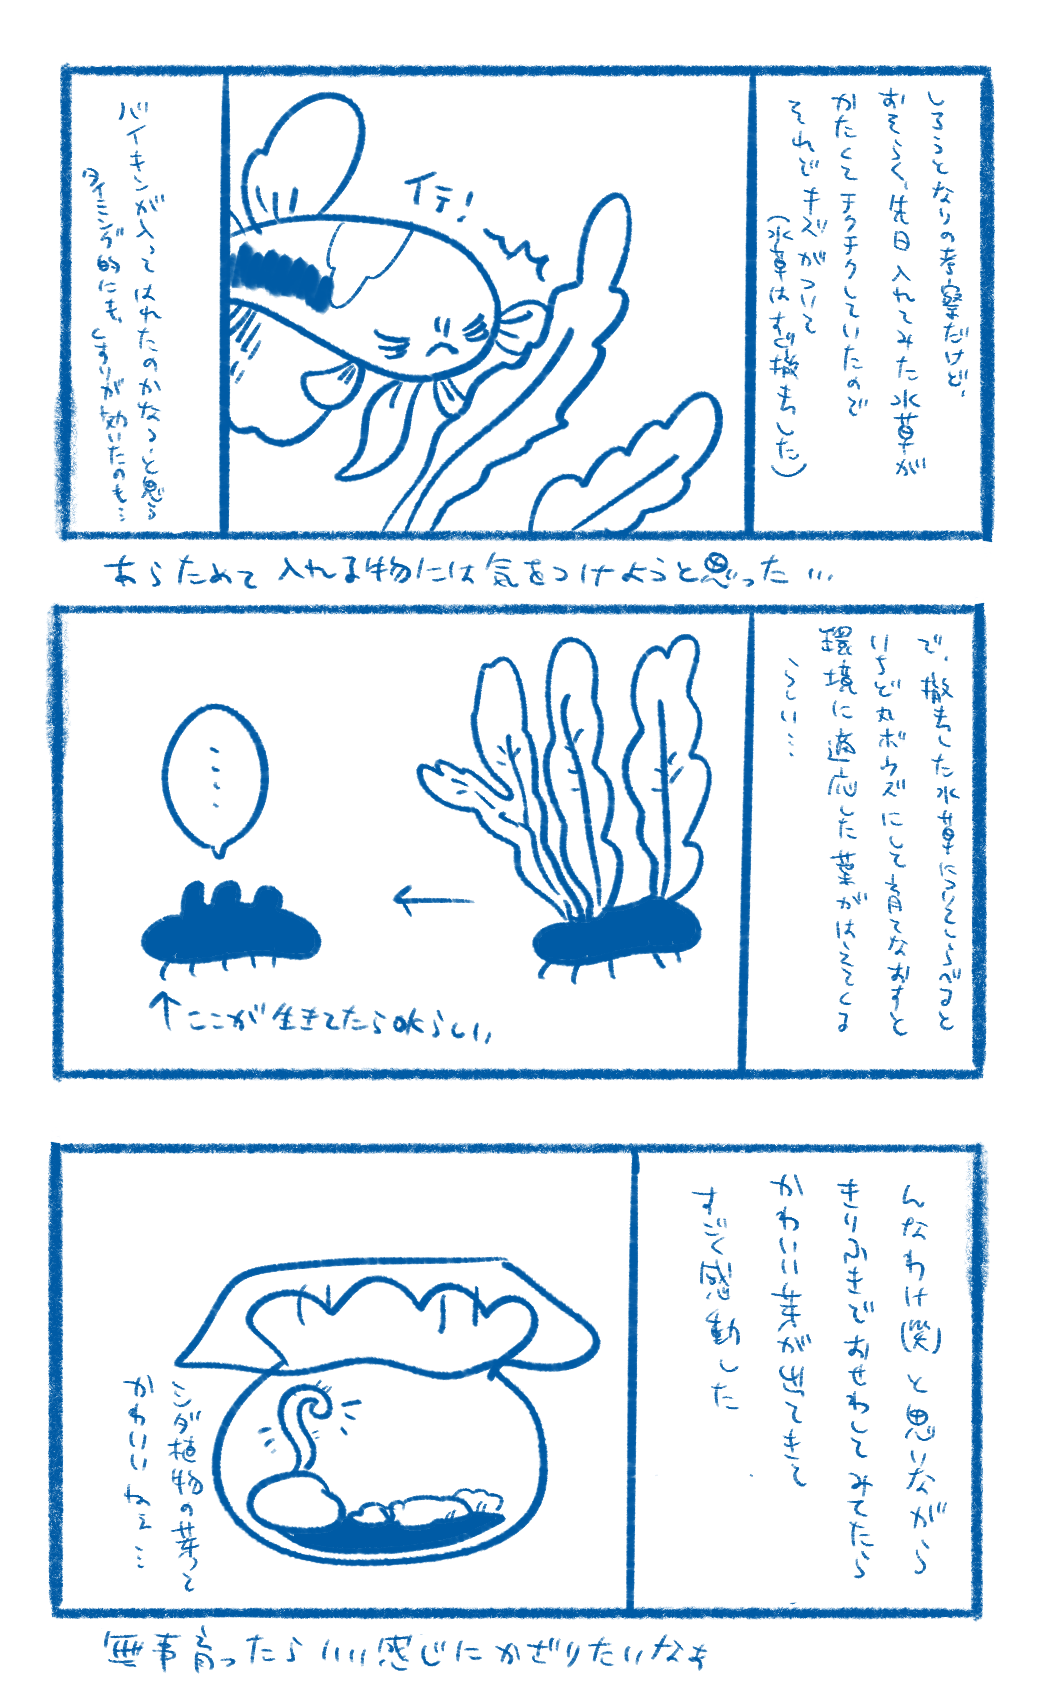 しろうとなりの考察だけど、
おそらく、先日入れてみた水草が
かたくてチクチクしていたので
それでキズがついて
(水草はすぐ撤去した)
イテ!
バイキンが入ってはれたのかな、と思う
タイミング的にも、くすりが効いたのも…
あらためて入れる物には気をつけようと思った…
で、撤去した水草についてしらべると
いちど丸ボウズにして育てなおすと
環境に適応した葉がはえてくる
らしい…
……
↑ここが生きてたらOKらしい
んなわけ(笑)と思いながら
きりふきでおせわしてみてたら
かわいい芽が出てきて
すごく感動した
シダ植物の芽って
かわいいねぇ…
無事育ったらいい感じにかざりたいなぁ